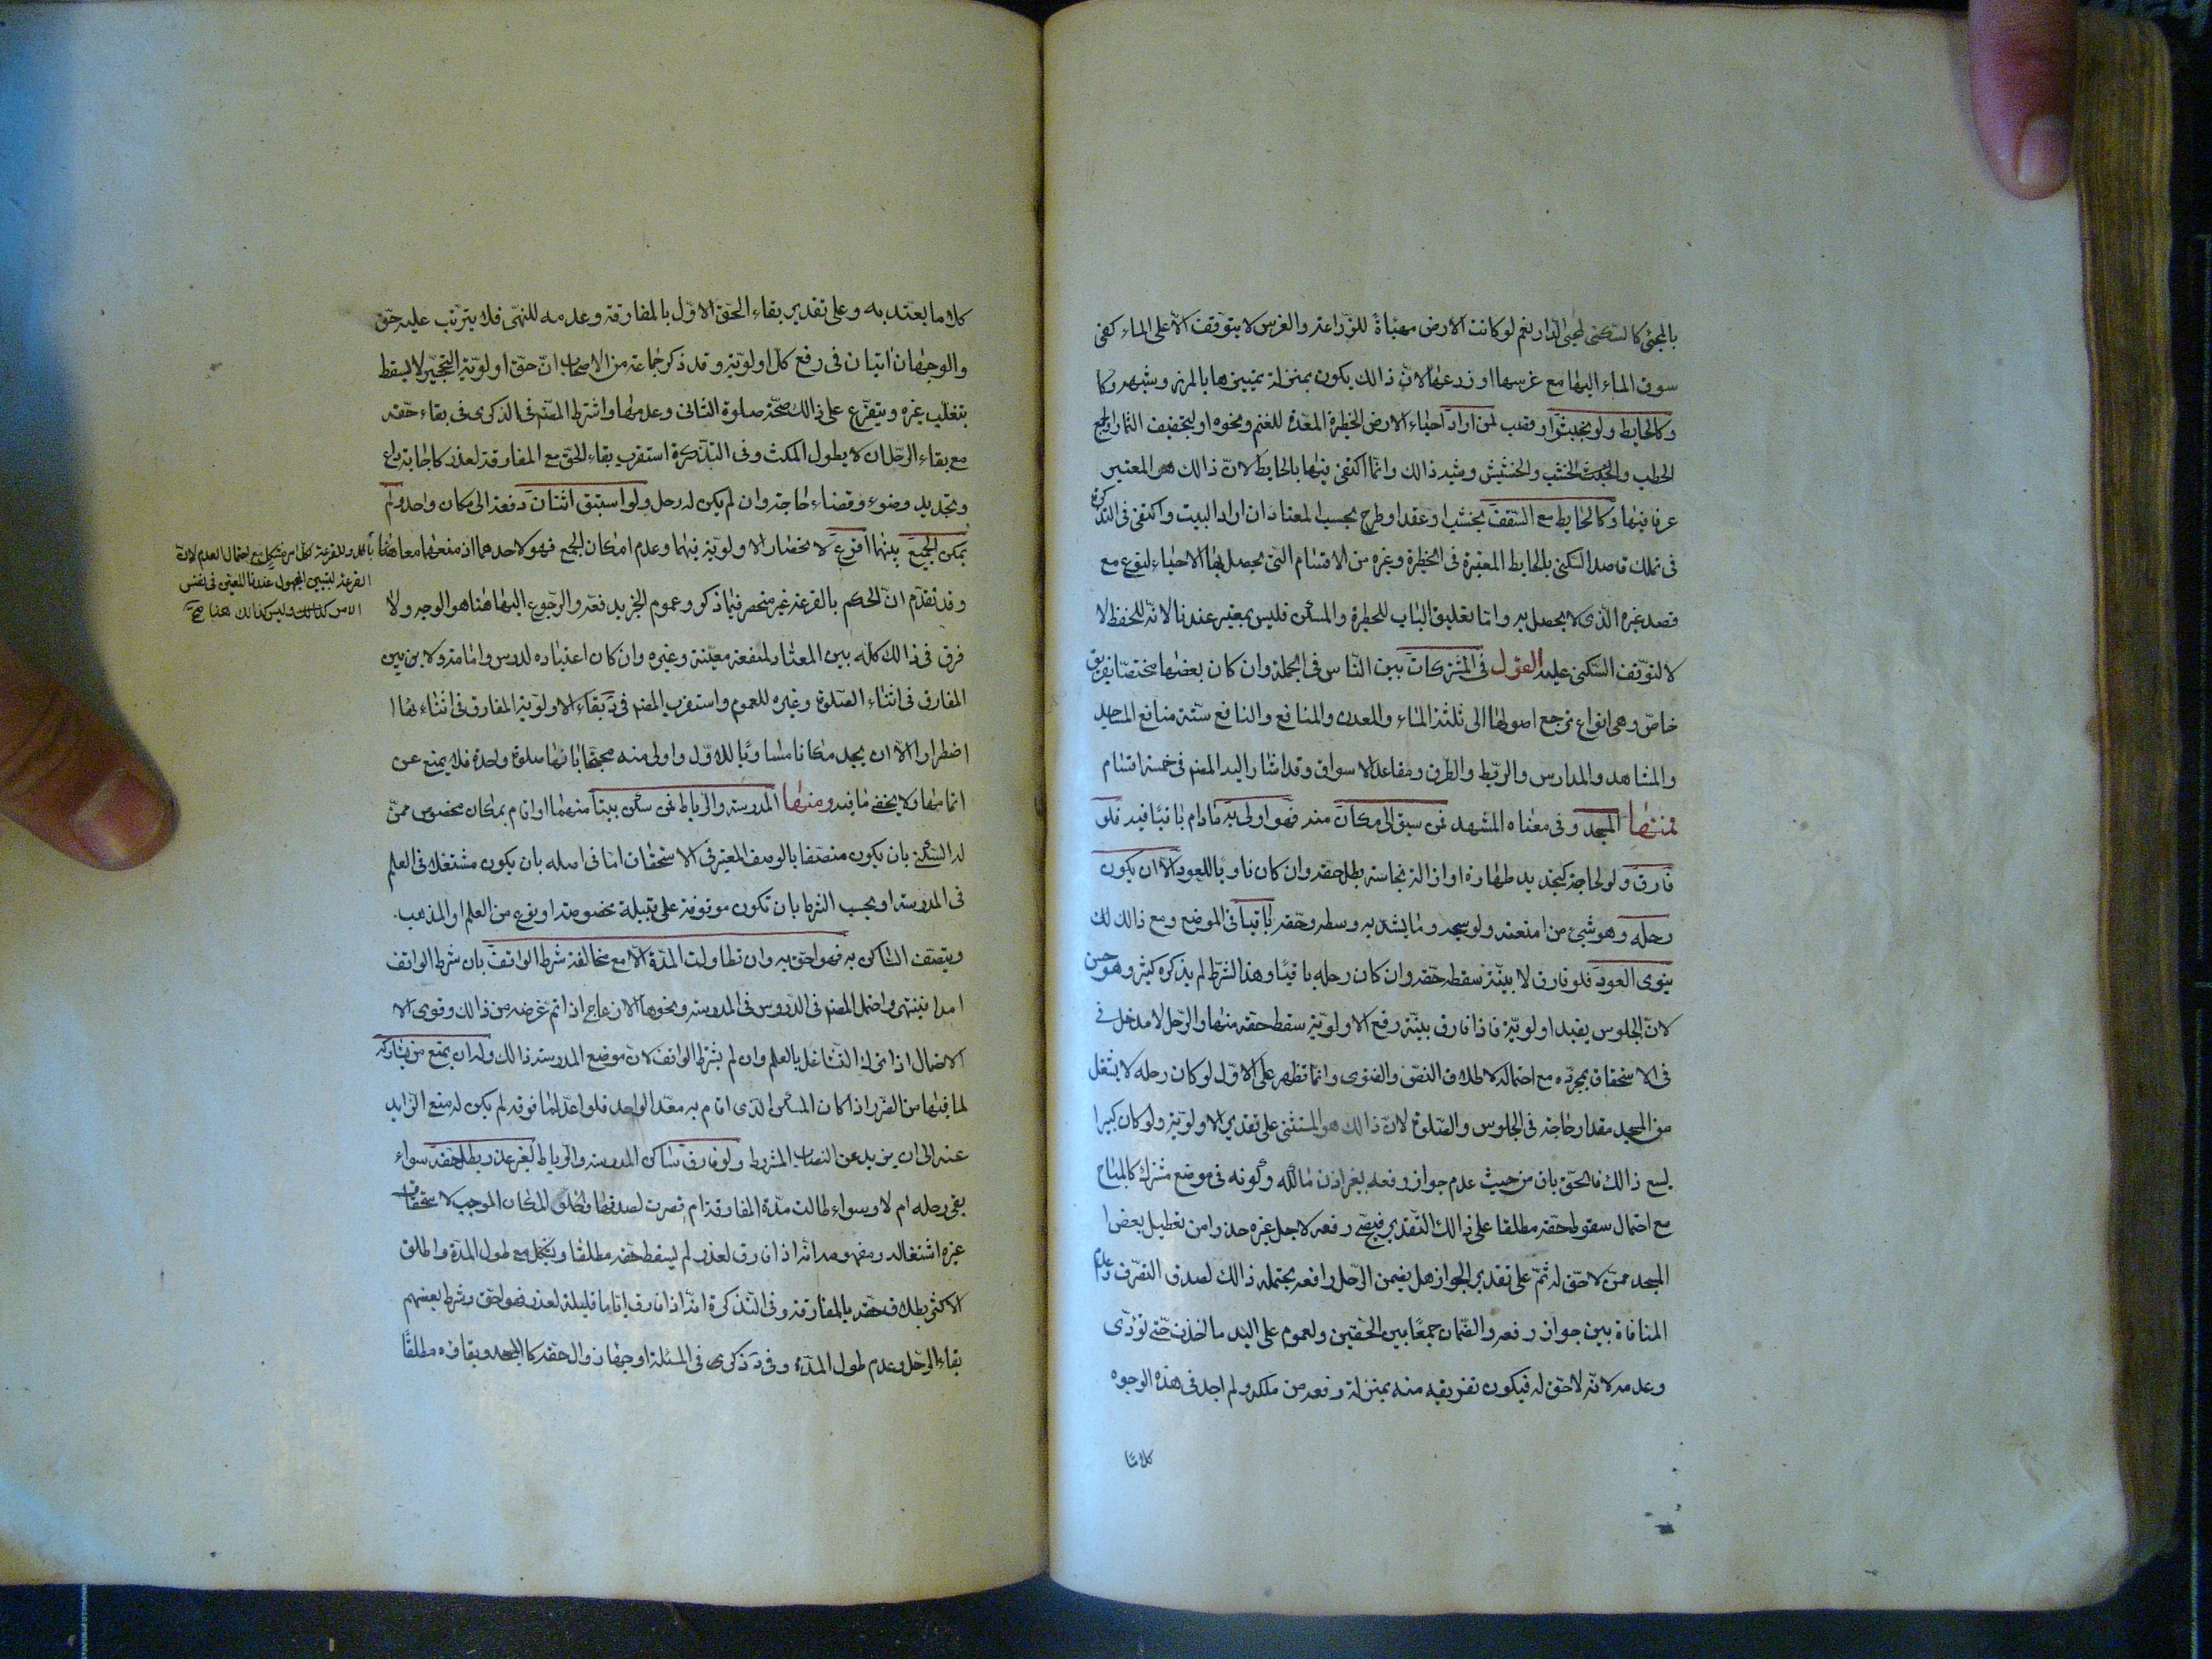 بالمجئ كالسكنى لمحيي الدار نعم لو كانت الارض مهياة للزراعة والغرس لا يتوقف الا على الماء كفى
سوق الماء اليها مع غرسها او زرعها لان ذالك يكون بمنزلة تمييزها بالمرز وشبهه وكا
وكالحايط ولو بخشب او قصب لمن اراد احياء الارض الحظيرة المعدة للغنم ونحوه او لتجفيف الثمار او لجمع
الحطب والخشب والحشيش وشبه ذالك وانما اكتفى فيها بالحايط لان ذالك هو المعتبر
عرفا فيها وكالحايط مع السقف بخشب او عقد او طرح بحسب المعتاد ان اراد البيت واكتفى في التذكرة
في تملك قاصد السكنى بالحايط المعتبرة في الحظيرة وغيره من الاقسام التي يحصل بها الاحياء لنوع مع
قصد غيره الذي لا يحصل به واما تعليق الباب للحظيرة والمسكن فليس بمعتبر عندنا لانه للحفظ لا
لا لتوقف السكنى عليه القول في المشتركات بين الناس في الجملة وان كان بعضها مختصا بفريق
خاص وهي انواع ترجع اصولها الى ثلثة الماء والمعدن والمنافع والمنافع ستة منافع المساجد
والمشاهد والمدارس والربط والطرق ومقاعد الاسواق وقد اشار اليه المصنف في خمسة اقسام
فمنها المسجد وفي معناه المشهد فمن سبق الى مكان منه فهو اولى به ما دام باقيا فيه فلو
فارق ولو لحاجة كتجديد طهارة او ازالة نجاسة بطل حقه وان كان ناويا للعود الا ان يكون
رحله وهو شيئ من امتعته ولو سبحة وما يشد به وسطه وخفه باقيا في الموضع ومع ذالك لك
ينوي العود فلو فارق لا بنيته سقط حقه وان كان رحله باقيا وهذا الشرط لم يذكره كثير وهو حسن
لان الجلوس يفيد اولوية فاذا فارق بنية رفع الاولوية سقط حقه منها والرحل لا مدخل في
في الاستحقاق بمجرده مع احتماله لاطلاق النص والفتوى وانما تظهر على الاول لو كان رحله لا يشغل
من المسجد مقدار حاجته في الجلوس والصلوة لان ذالك هو المستثنى على تقدير الاولوية ولو كان كبيرا
يسع ذالك فالحق باق من حيث عدم جواز رفعه بغير اذن مالكه وكونه في موضع مشترك كالمباح
مع احتمال سقوط حقه مطلقا على ذالك التقدير فيصح رفعه لاجل غيره حذرا من تعطيل بعض ا
المسجد ممن لا حق له ثم على تقدير الجواز هل يضمن الرحل رافعه يحتمله ذالك لصدق التصرف وعدم
المنافاة بين جواز رفعه والضمان جمعا بين الحقين ولعموم على اليد ما اخذت حتى تؤدى
وعدمه لانه لا حق له فيكون تفريقه منه بمنزلة رفعه من ملكه ولم اجد في هذه الوجوه
كلاما
كلاما يعتد به وعلى تقدير بقاء الحق الاول بالمفارقة وعدمه للنهي فلا يترتب عليه حق
والوجهان اتيان في رفع كل اولوية وقد ذكر جماعة من الاصحاب ان حق اولوية التحجير لا يسقط
بتغلب غيره ويتفرع على ذالك صحة صلوة الثاني وعدمها واشترط المصنف في الذكرى في بقاء حقه
مع بقاء الرحل ان لا يطول المكث وفي التذكرة استقرب بقاء الحق مع المفارقة لعذر كاجابة داع
وتجديد وضوء وقضاء حاجة وان لم يكن له رحل ولو استبق اثنان دفعة الى مكان واحد ولم
يمكن الجمع بينهما اقرع لانحصار الاولوية فيهما وعدم امكان الجمع فهو لاحدهما اذ منعهما معا
وقد تقدم ان الحكم بالقرعة غير منحصر فيما ذكر وعموم الخبر يدفعه والرجوع اليها هنا هو الوجه ولا
باطل والقرعة لكل امر مشكل مع احتمال العدم لان
القرعة لتبيين المجهول عندنا المعين في نفس
الامر كذالك وليس كذالك هنا صح
فرق في ذالك كله بين المعتاد لمنفعة معينة وغيره وان كان اعتياده لدرس وامامة ولا بين بين
المفارق في اثناء الصلوة وغيره للعموم واستقرب المصنف في س بقاء الاولوية المفارق في اثناءها ا
اضطرارا الا ان يجد مكانا مساويا للاول واولى منه محتجا بانها صلوة واحدة فلا يمنع عن
اتمامها ولا يخفى ما فيه ومنها المدرسة والرباط فمن سكن بيتا منهما او اقام بمكان مخصوص ممن
له السكنى بان يكون متصفا بالوصف المعتبر في الاستحقاق اما في اصله بان يكون مشتغلا في العلم
في المدرسة او بحسب الشرط بان تكون موقوفة على قبيلة مخصوصة او نوع من العلم او المذهب.
ويتصف الساكن به فهو احق به وان تطاولت المدة الا مع مخالفة شرط الواقف بان شرط الواقف
امدا فينتهى واحتمل المصنف في الدروس في المدرسة ونحوها الازعاج اذا تم غرضه من ذالك وقوى الا
الاحتمال اذا ترك التشاغل بالعلم وان لم يشترط الواقف لان موضع المدرسة ذالك وله ان يمنع من يشاركه
لما فيها من الضرر اذا كان المسكن الذي اقام به معد الواحد فلو اعد لما فوقه لم يكن له منع الزايد
عنه الى ان يزيد عن النصاب المشروط ولو فارق ساكن المدرسة والرباط لغير عذر بطل حقه سواء
بقي رحله ام لا وسواء طالت مدة المفارقة ام قصرت لصدقها وخلو المكان الموجب لاستحقاق
غيره اشتغاله ومفهومه انه اذا فارق لعذر لم يسقط حقه مطلقا ويشكل مع طول المدة واطلق
الاكثر بطلان حقه بالمفارقة وفي التذكرة انه اذا فارق اياما قليلة لعذر فهو احق وشرط بعضهم
بقاء الرحل وعدم طول المدة وفي س ذكرى في المسئلة اوجها زوال حقه كالمسجد وبقاؤه مطلقا